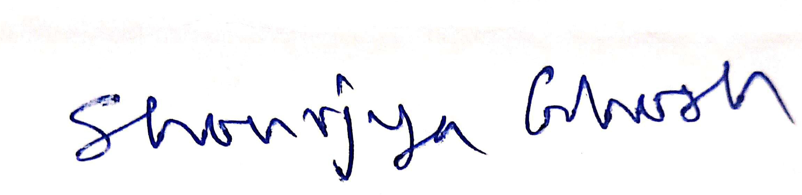 Shourjya Ghosh